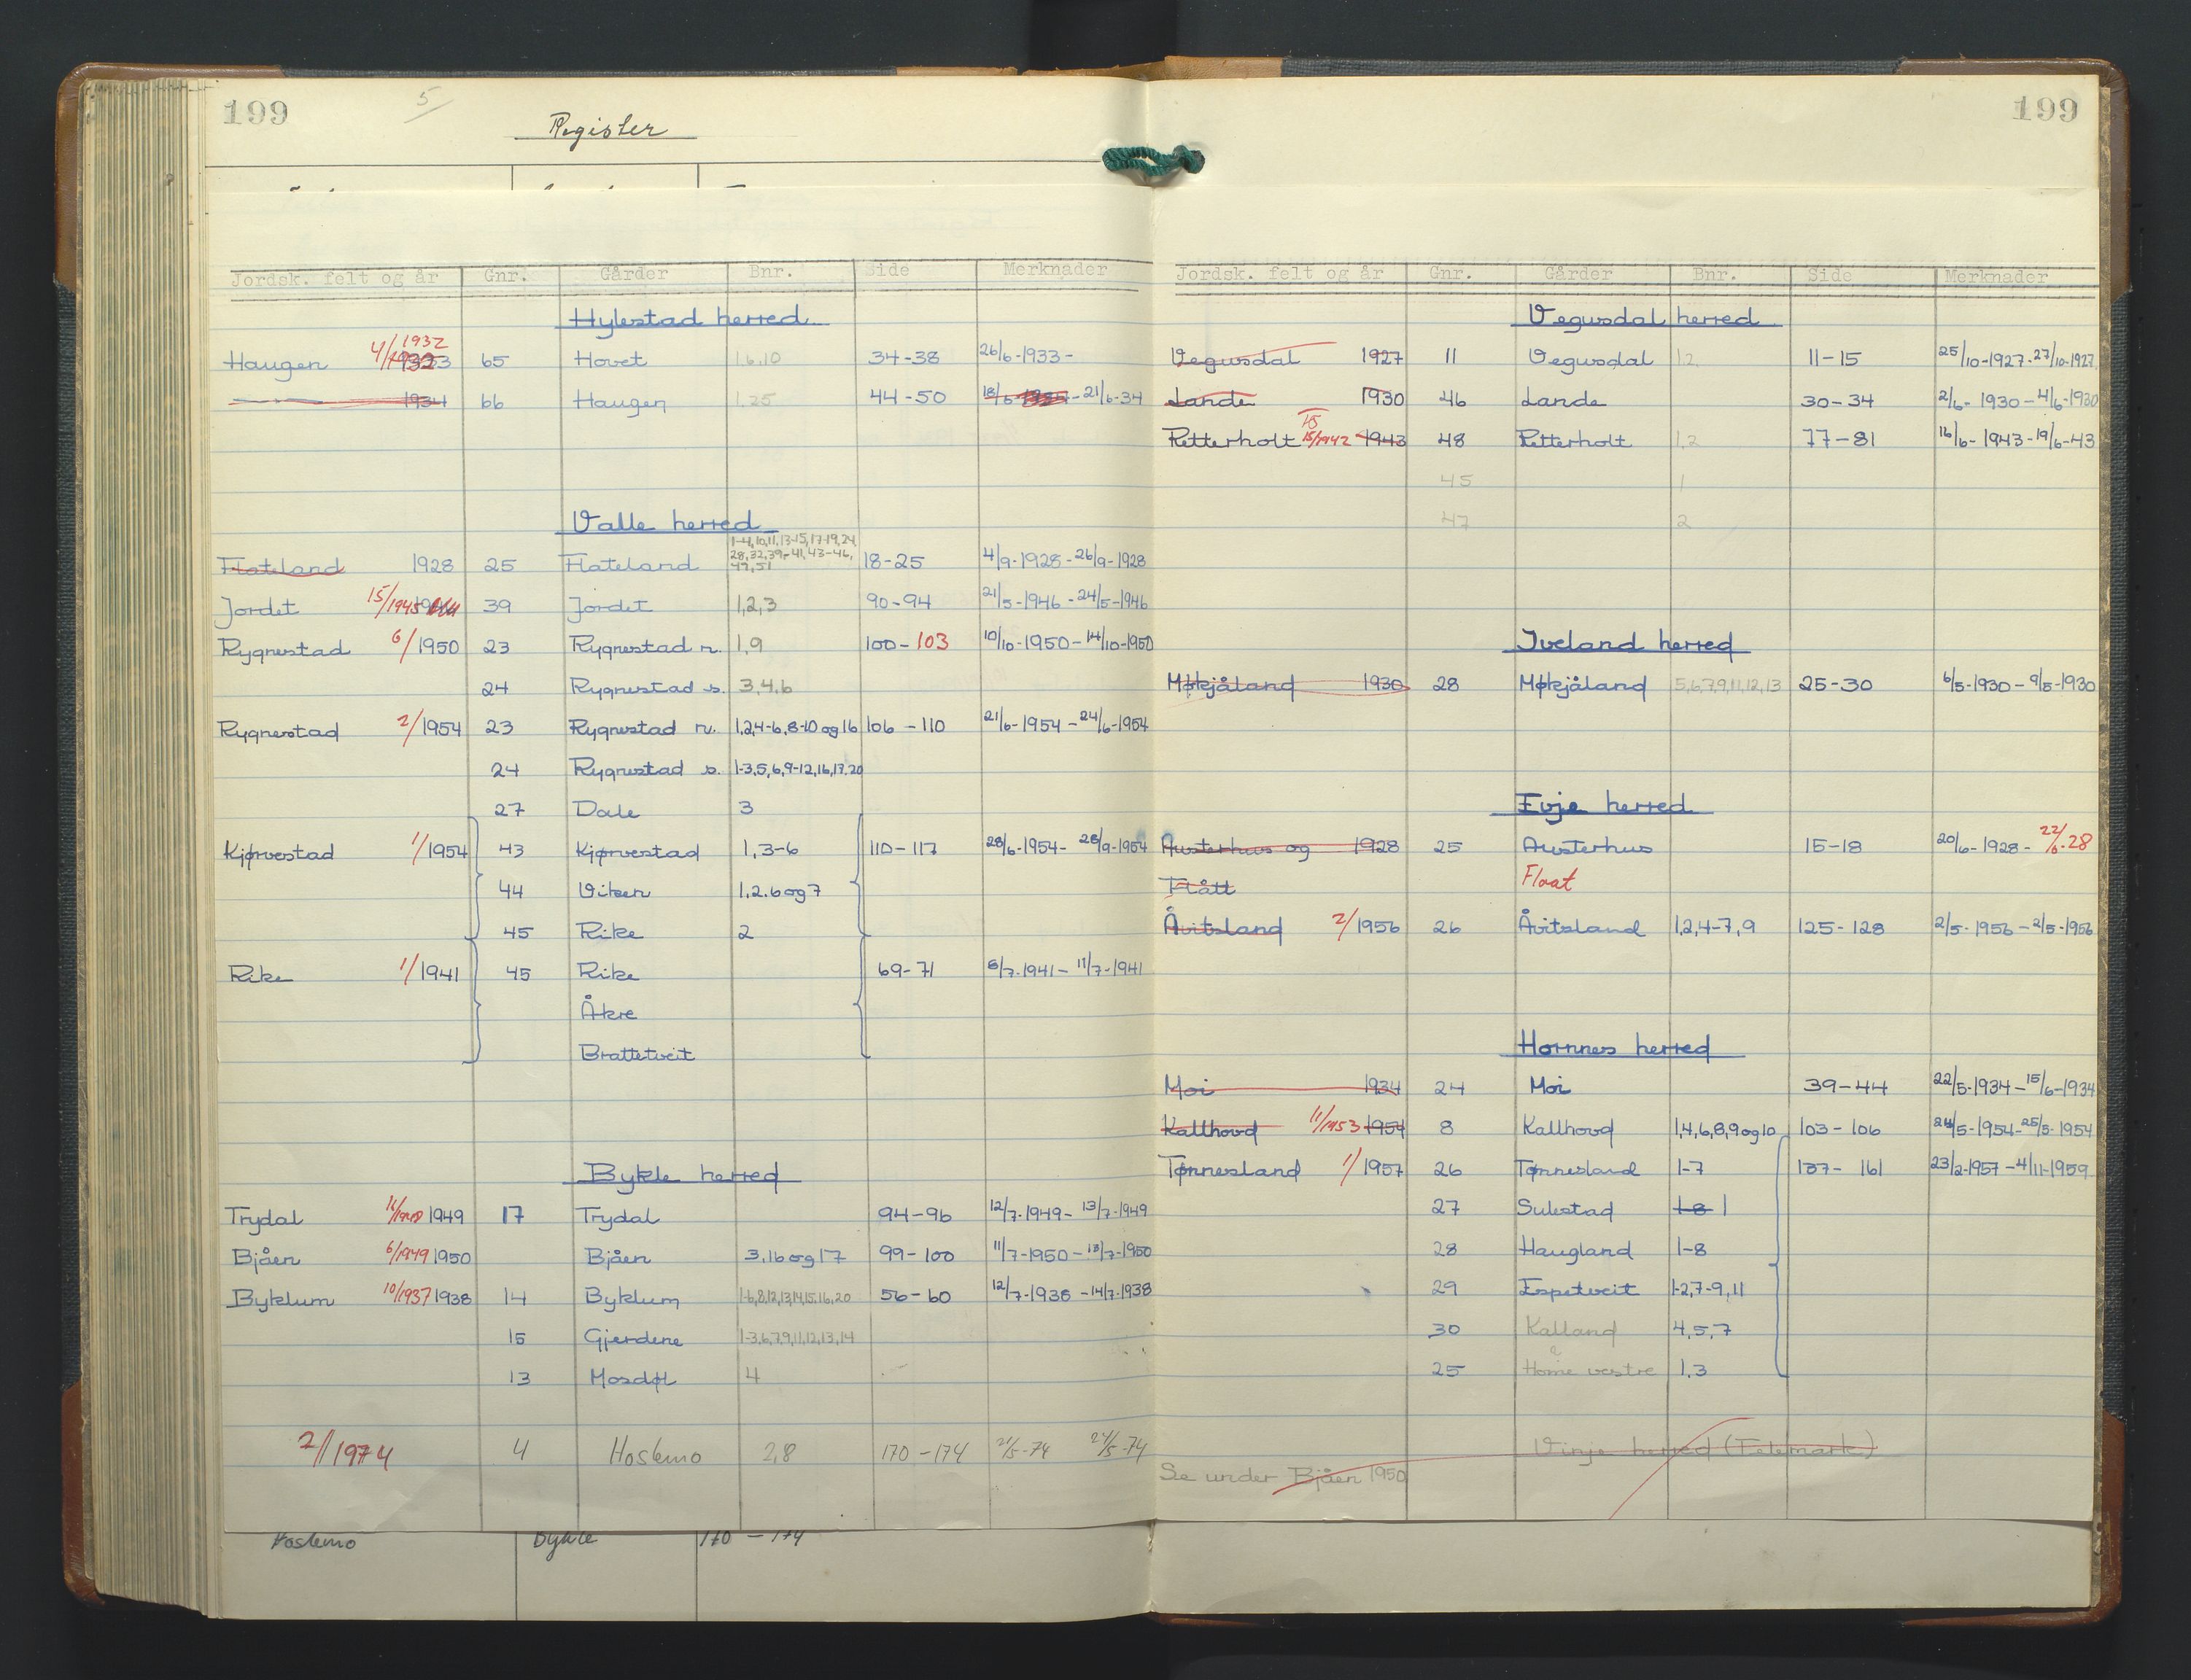 199 5 199
Register
Jordsk. felt og år Gnr. Gårder Bnr. Side Merknader
Hylestad herred
Haugen 4/1932 1933 65 Hovet 1,6,10 34-38 26/6-1933-
1934 66 Haugen 1,25 44-50 18/6 - 21/6-34
Valle herred
1-4,10,11,13-15,17-19,24,
28,32,39-41,43-46,
Flateland 1928 25 Flateland 47,51 18-25 4/9-1928-26/9-1928
Jordet 15/1945 39 Jordet 1,2,3 90-94 21/5-1946-24/5-1946
Rygnestad 6/1950 23 Rygnestad n. 1,9 100-103 10/10-1950-14/10-1950
24 Rygnestad s. 3,4,6
Rygnestad 2/1954 23 Rygnestad n. 1,2,4-6,8-10 og 16 106-110 21/6-1954-24/6-1954
24 Rygnestad s. 1-3,5,6,9-12,16,17,20
27 Dale 3
Kjørvestad 1/1954 43 Kjørvestad 1,3-6 110-117 28/6-1954-28/9-1954
44 Viken 1,2,6 og 7
45 Rike 2
Rike 1/1941 45 Rike 69-71 8/7-1941-11/7-1941
Åkre
Brattetveit
Bykle herred
Trydal 1949 17 Trydal 94-96 12/7-1949-13/7-1949
Bjåen 6/1949 1950 Bjåen 3,16 og 17 99-100 11/7-1950-13/7-1950
Byklum 10/1937 1938 14 Byklum 1-6,8,12,13,14,15,16,20 56-60 12/7-1938-14/7-1938
15 Gjerdene 1-3,6,7,9,11,12,13,14
13 Mosdøl 4
2/1974 4 Hoslemo 2,8 170-174 21/5-74 24/5-74
Hoslemo Bykle 170-174
Jordsk. felt og år Gnr. Gårder Bnr. Side Merknader
Vegusdal herred
Vegusdal 1927 11 Vegusdal 1,2 11-15 25/10-1927-27/10-1927
Lande 1930 46 Lande 30-34 2/6-1930-4/6-1930
15
Retterholt 15/1942 1943 48 Retterholt 1,2 77-81 16/6-1943-19/6-43
45 1
47 2
Iveland herred
Møkjåland 1930 28 Møkjåland 5,6,7,9,11,12,13 25-30 6/5-1930-9/5-1930
Evje herred
Austerhus og 1928 25 Austerhus 15-18 20/6-1928-22/6-28
Flått Flaat
Åvitsland 2/1956 26 Åvitsland 1,2,4-7,9 125-128 2/5-1956-2/5-1956
Hornnes herred
Moi 1934 24 Moi 39-44 22/5-1934-15/6-1934
Kallhovd 11/1953 1954 8 Kallhovd 1,4,6,8,9 og 10 103-106 24/5-1954-25/5-1954
Tønnesland 1/1957 26 Tønnesland 1-7 137-161 23/2-1957-4/11-1959
27 Sulestad 1-8 1
28 Haugland 1-8
29 Espetveit 1-2,7-9,11
30 Kalland 4,5,7
25 Horne vestre 1,3
Vinje herred (Telemark)
Se under Bjåen 1950